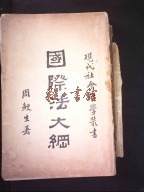 現代社會科學叢書
國際法大綱
周鯁生著